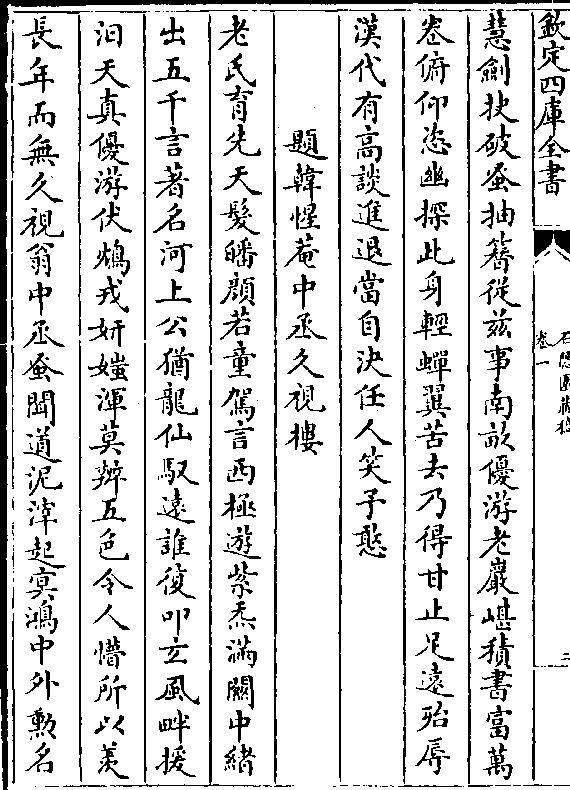 欽定四庫全書
石隱園藏稿
卷一
三
慧劍抉破蚤抽簪從兹事南畝優游老巖嵁積書富萬
卷俯仰恣幽探此身輕蟬翼苦去乃得甘止足遠殆辱
漢代有高談進退當自決任人笑予憨
題韓惺菴中丞久視樓
老氏育先天髮皤顔若童駕言西極遊紫炁滿闗中緒
出五千言著名河上公猶龍仙馭遠誰復叩玄風畔援
汨天真優游伏鴆戎妍媸渾莫辨五色令人懵所以羡
長年而無久視翁中丞蚤聞道泥滓起㝠鴻中外勲名